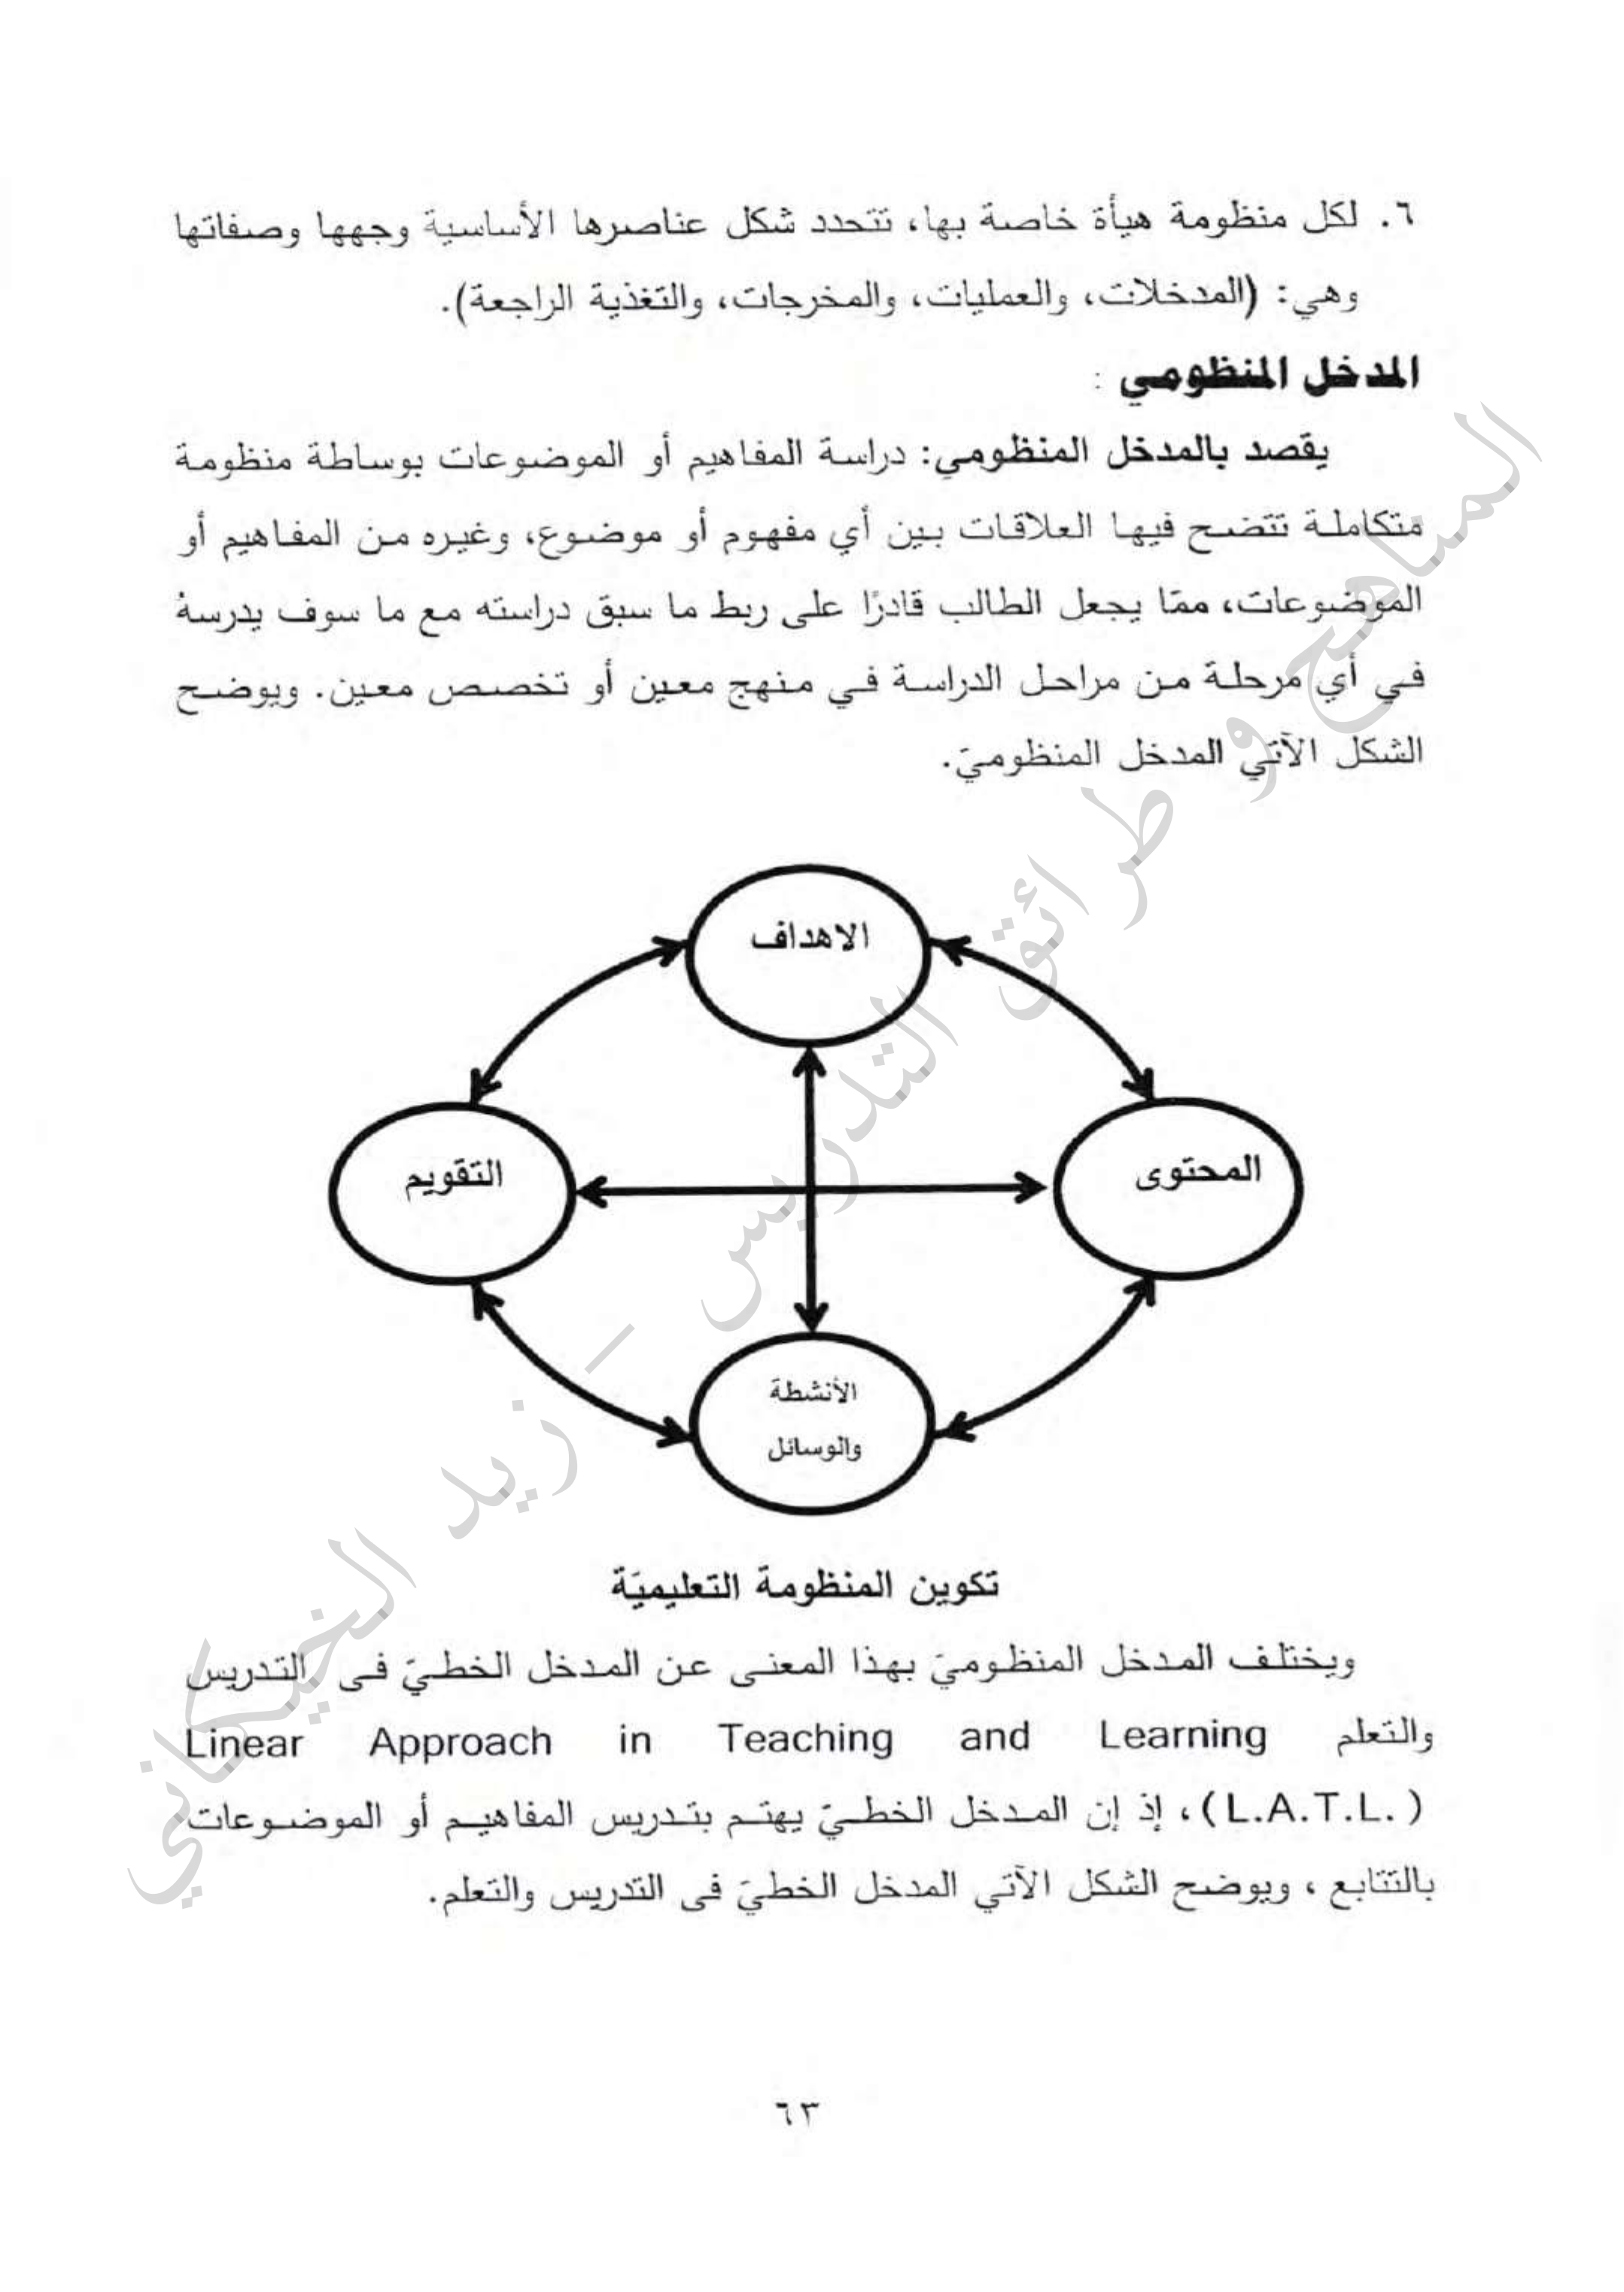 ٦. لكل منظومة هيأة خاصة بها، تتحدد شكل عناصرها الأساسية وجهها وصفاتها
وهي: (المدخلات، والعمليات، والمخرجات، والتغذية الراجعة).
المدخل المنظومي :
يقصد بالمدخل المنظومي: دراسة المفاهيم أو الموضوعات بوساطة منظومة
متكاملة تتضح فيها العلاقات بين أي مفهوم أو موضوع، وغيره من المفاهيم أو
الموضوعات، ممّا يجعل الطالب قادرًا على ربط ما سبق دراسته مع ما سوف يدرسهُ
في أي مرحلة من مراحل الدراسة في منهج معين أو تخصص معين. ويوضح
الشكل الآتي المدخل المنظوميّ.
الاهداف
المحتوى
التقويم
الأنشطة
والوسائل
تكوين المنظومة التعليميّة
ويختلف المدخل المنظوميّ بهذا المعنى عن المدخل الخطيّ فى التدريس
والتعلم Linear Approach in Teaching and Learning
(L.A.T.L. )، إذ إن المدخل الخطيّ يهتم بتدريس المفاهيم أو الموضوعات
بالتتابع ، ويوضح الشكل الآتي المدخل الخطيّ فى التدريس والتعلم.
٦٣
المناهج و طرائق التدريس - زيد الخيكاني